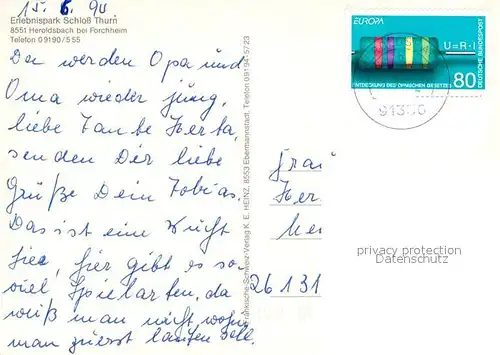 15. 6. 94
Erlebnispark Schloß Thurn
8551 Heroldsbach bei Forchheim
Telefon 09190/555
Da werden Opa und
Oma wieder jung,
liebe Tante Herta,
senden Dir liebe
Grüße Dein Tobias.
Das ist eine Wucht
hier, hier gibt es so
viel Spielarten, da
weiß man nicht wohin
man zuerst laufen soll.
Fränkische-Schweiz-Verlag K. E. HEINZ, 8553 Ebermannstadt, Telefon 09194-5723
EUROPA
U=R·I
ENTDECKUNG DES OHMSCHEN GESETZES
80
DEUTSCHE BUNDESPOST
Frau
Her
26131
privacy protection
Datenschutz